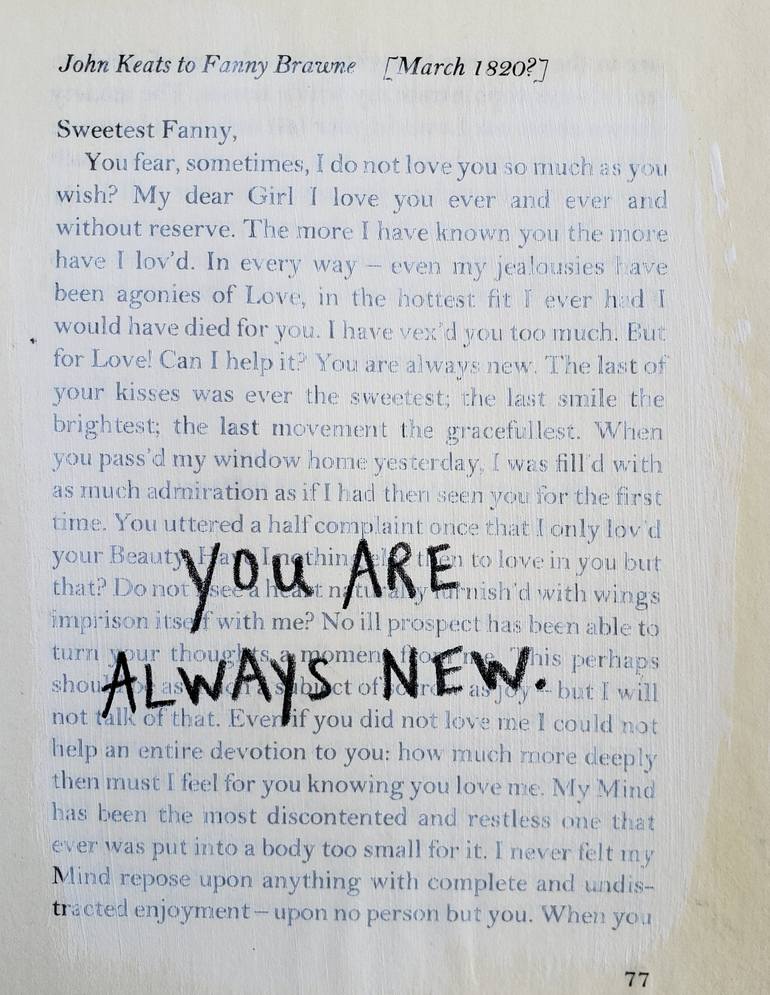 John Keats to Fanny Brawne [March 1820?]
Sweetest Fanny,
You fear, sometimes, I do not love you so much as you
wish? My dear Girl I love you ever and ever and
without reserve. The more I have known you the more
have I lov'd. In every way – even my jealousies have
been agonies of Love, in the hottest fit I ever had I
would have died for you. I have vex'd you too much. But
for Love! Can I help it? You are always new. The last of
your kisses was ever the sweetest; the last smile the
brightest; the last movement the gracefullest. When
you pass'd my window home yesterday, I was fill'd with
as much admiration as if I had then seen you for the first
time. You uttered a half complaint once that I only lov'd
your Beauty. Have I nothing else then to love in you but
YOU ARE
that? Do not I see a heart naturally furnish'd with wings
imprison itself with me? No ill prospect has been able to
turn your thoughts a moment from me. This perhaps
ALWAYS NEW.
should be as much a subject of sorrow as joy – but I will
not talk of that. Even if you did not love me I could not
help an entire devotion to you: how much more deeply
then must I feel for you knowing you love me. My Mind
has been the most discontented and restless one that
ever was put into a body too small for it. I never felt my
Mind repose upon anything with complete and undis-
tracted enjoyment – upon no person but you. When you
77